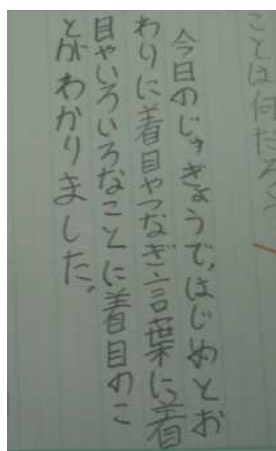 ことは何だろう
今日のじゅぎょうで、はじめとお
わりに着目やつなぎ言葉に着
目やいろいろなことに着目のこ
とがわかりました。